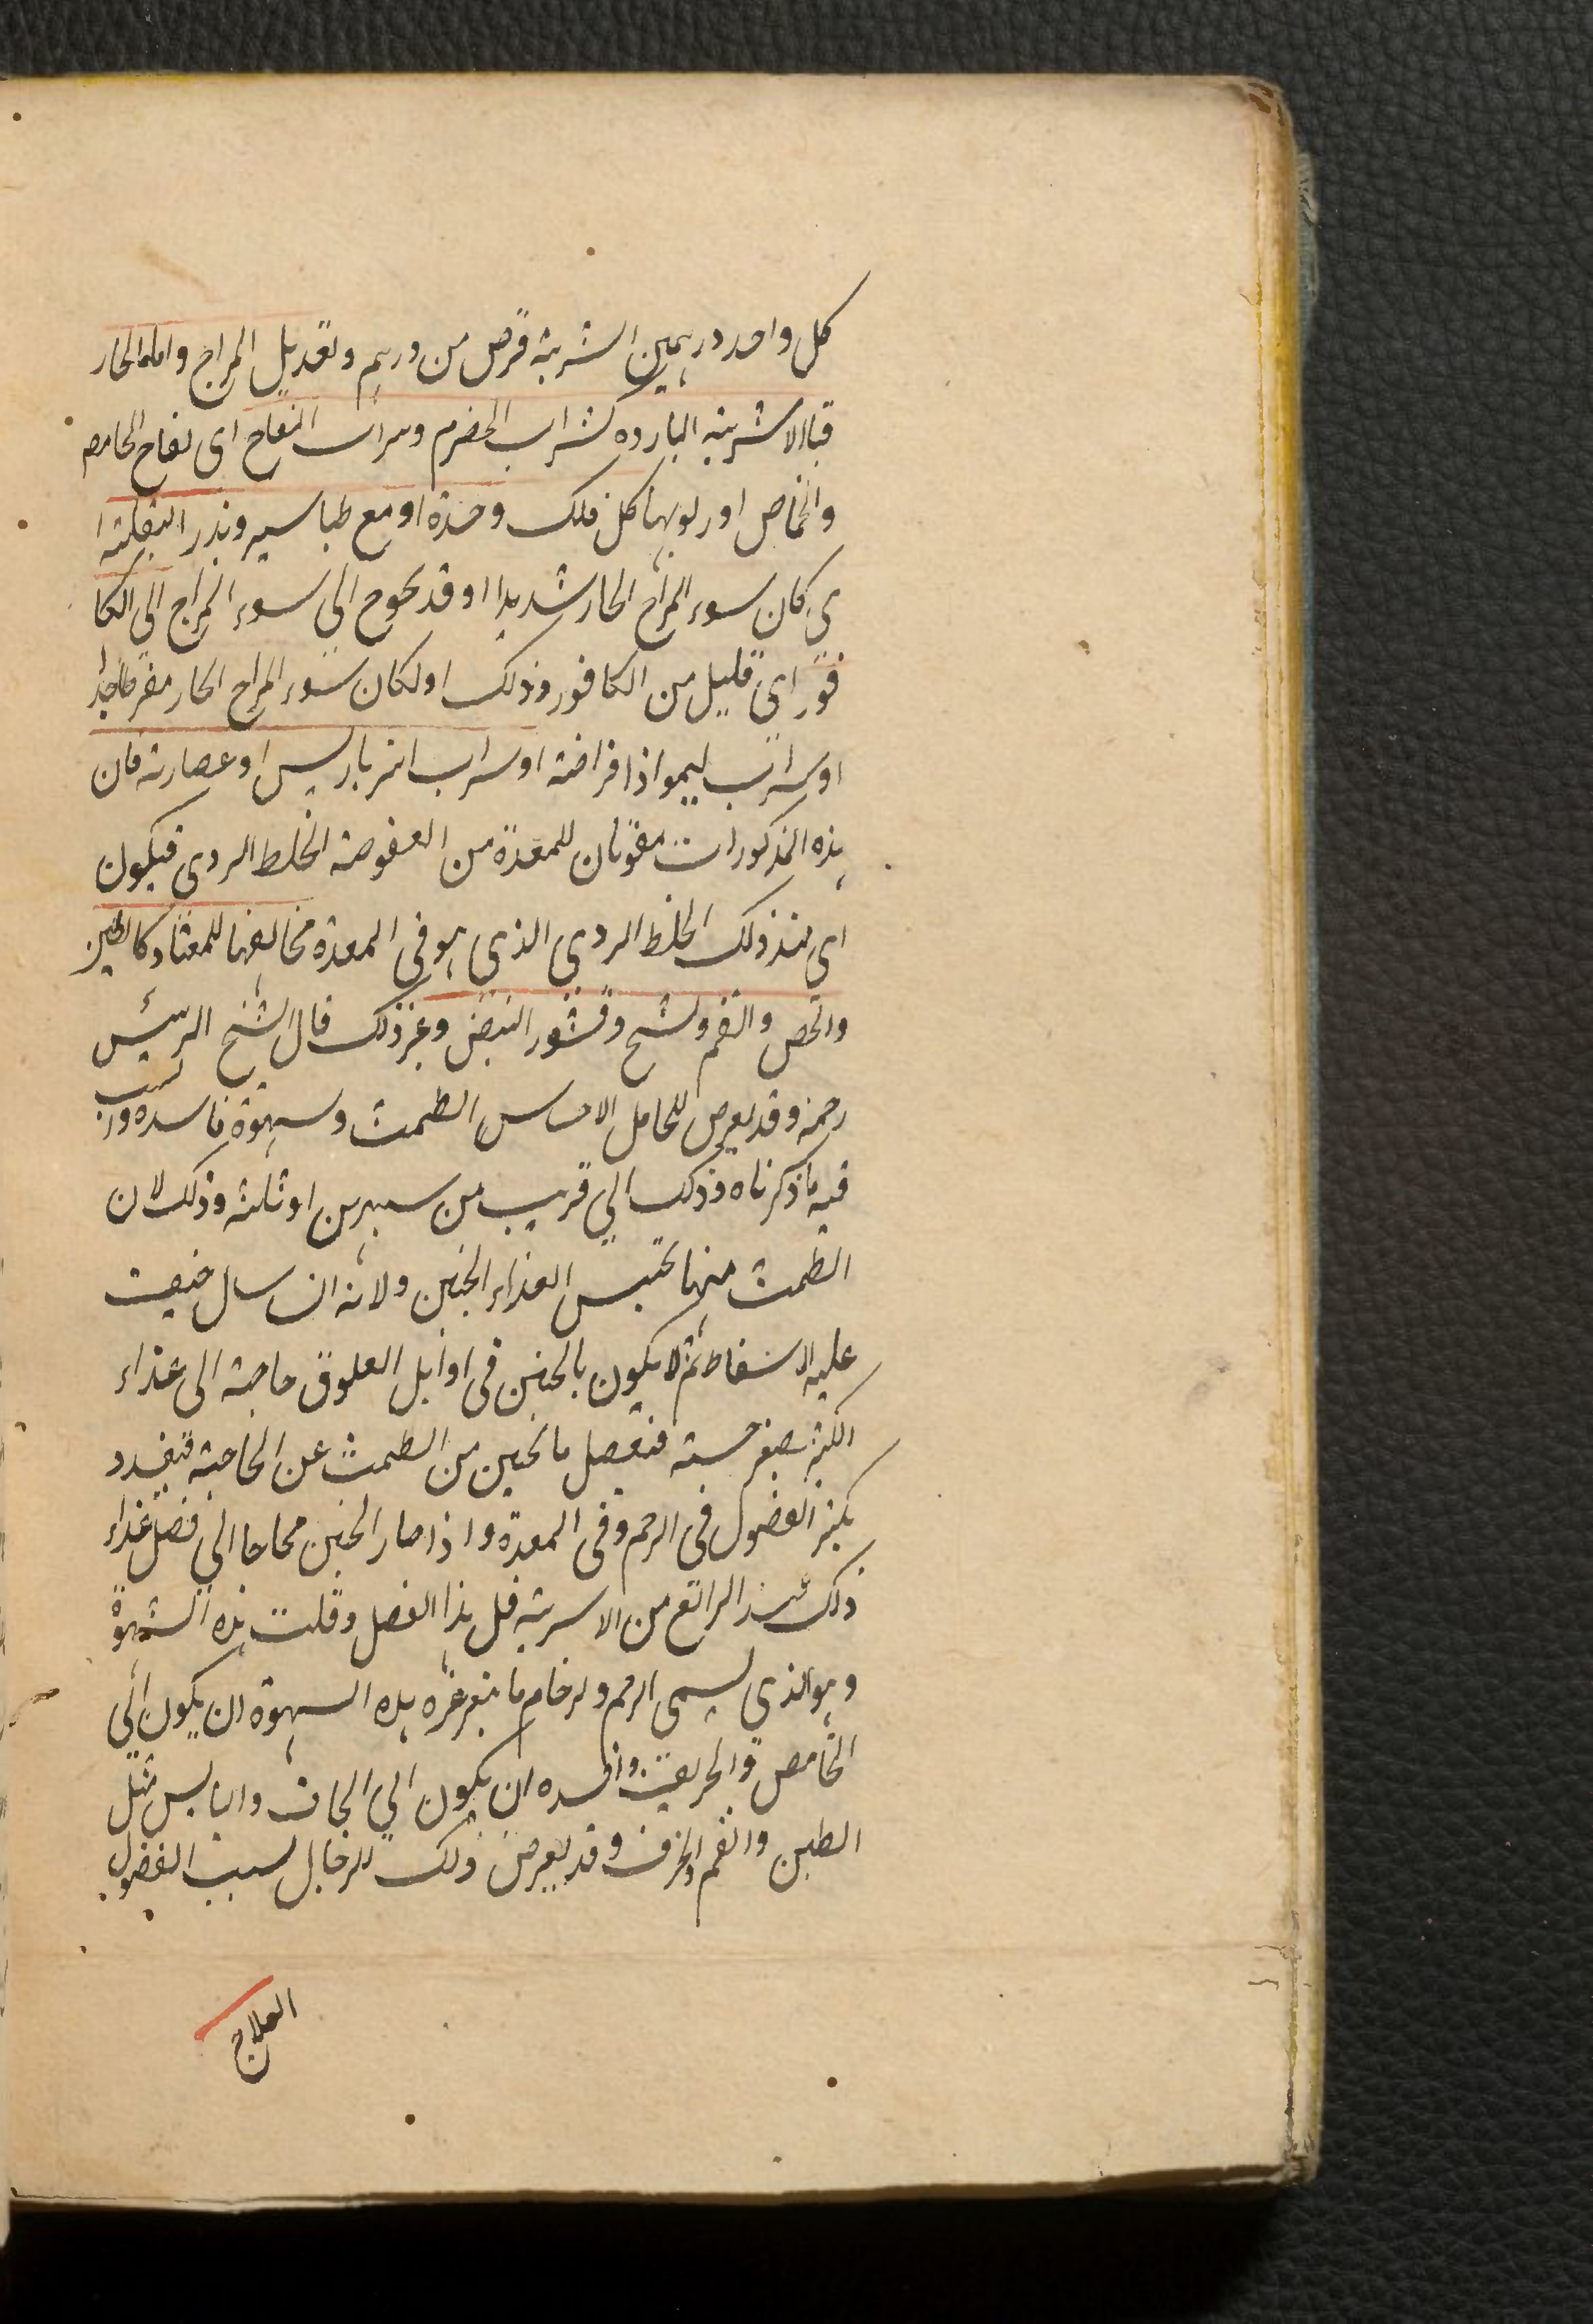 كل واحد درهمين الشربة قرص من درهم وتعديل المزاج واما الحار
فبالاشربة الباردة كشراب الحصرم وشراب التفاح اى تفاح الحامض
والحماض او ربوبهما كل ذلك وحده او مع طباشير وبذر البقلة ا
ى كان سوء المزاج الحار شديدا او قد يحوج الى سوء المزاج الى الكا
فور اى قليل من الكافور وذلك اولكان سوء المزاج الحار مفرطا جدا
او شراب ليمو اذا قراضة او شراب انبرباريس او عصارته فان
هذه المذكورات مقويان للمعدة من العفوصة الخلط الردى فيكون
اى عند ذلك الخلط الردي الذي هو في المعدة مخالفها للمعتاد كالطين
والجص والفحم وشيح وقشور البيض وغير ذلك قال الشيخ الرئيس
رحمه وقد يعرض للحامل لاحتباس الطمث وشهوة فاسدة والسبب
فيه ما ذكرناه وذلك الي قريب من شهرين او ثلثة وذلك لان
الطمث منها يحتبس لغذاء الجنين ولانه ان سال خيفت
عليه الاسقاط ثم لا يكون بالجنين فى اوايل العلوق حاجة الى غذاء
اكثر لصغر جسته فيفصل ما يحتبس من الطمث عن الحاجة فيفسد و
يكثر الفضول فى الرحم وفى المعدة واذا صار الجنين محتاجا الي فضل غذاء
ذلك عند الرابع من الاشربة قل هذا الفضل وقلت هذه الشهوة
وهو الذي يسمى الوحم والوحام ما يتغير هذه الشهوة ان يكون الي
الحامض والحريف وافسده ان يكون الي الجاف واليابس مثل
الطين والفحم والخزف وقد يعرض ذلك للرجال لسبب الفضول
العلاج